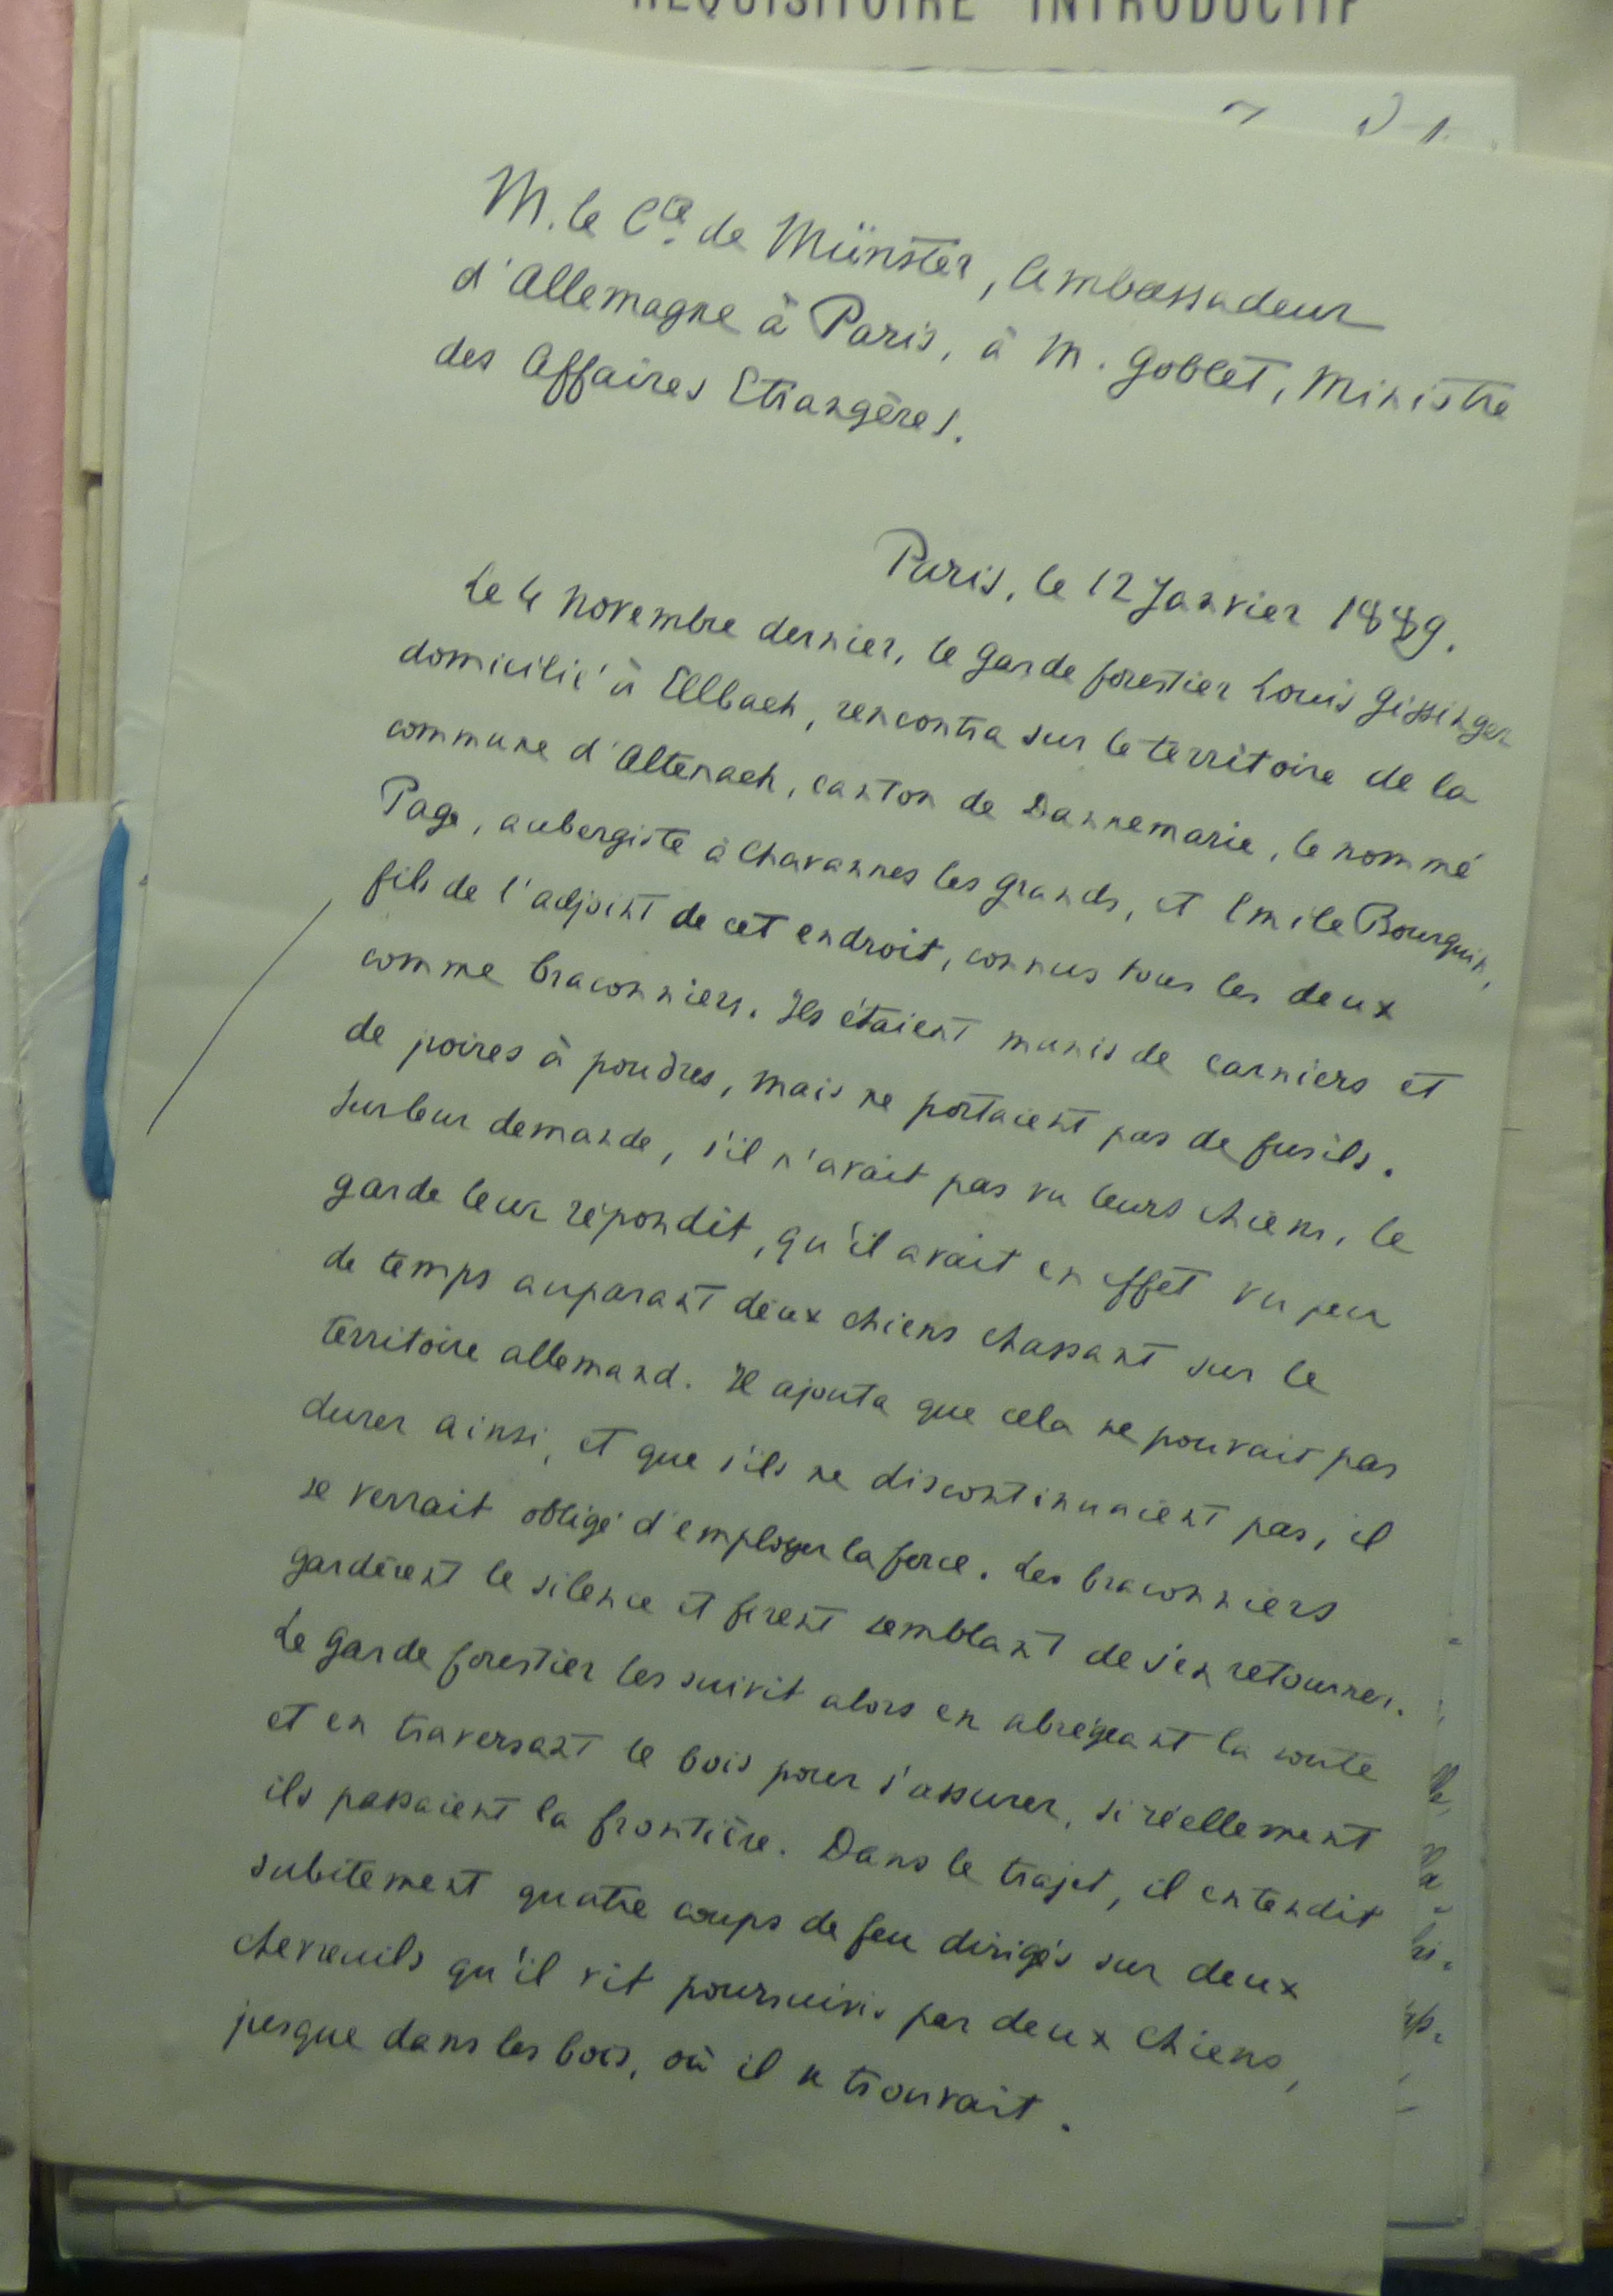 REQUISITOIRE INTRODUCTIF
M. le Cte de Münster, Ambassadeur
d'Allemagne à Paris, à M. Goblet, Ministre
des Affaires Etrangères.
Paris, le 12 Janvier 1889.
Le 4 Novembre dernier, le garde forestier Louis Gissinger
domicilié à Ellbach, rencontra sur le territoire de la
commune d'Altenach, canton de Dannemarie, le nommé
Page, aubergiste à Chavannes les Grands, et Emile Bourquin,
fils de l'adjoint de cet endroit, connus tous les deux
comme braconniers. Ils étaient munis de carniers et
de poires à poudres, mais ne portaient pas de fusils.
Sur leur demande, s'il n'avait pas vu leurs chiens, le
garde leur répondit, qu'il avait en effet vu peu
de temps auparant deux chiens chassant sur le
territoire allemand. Il ajouta que cela ne pouvait pas
durer ainsi, et que s'ils ne discontinuaient pas, il
se verrait obligé d'employer la force. Les braconniers
gardèrent le silence et firent semblant de s'en retourner.
Le garde forestier les suivit alors en abrégeant la route
et en traversant le bois pour s'assurer, si réellement
ils passaient la frontière. Dans le trajet, il entendit
subitement quatre coups de feu dirigés sur deux
chevreuils qu'il vit poursuivis par deux chiens,
jusque dans les bois, où il se trouvait.